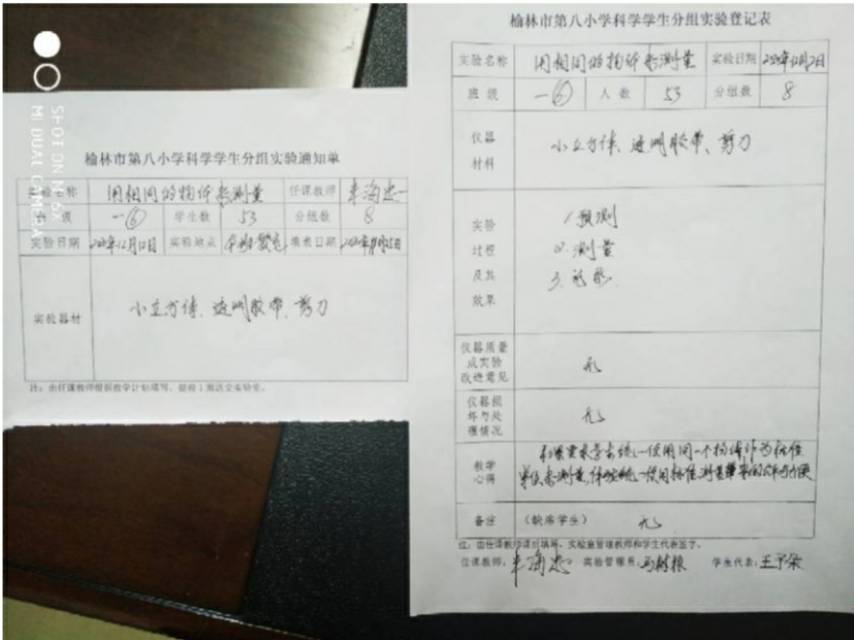 SHOT ON MI 6X
MI DUAL CAMERA
榆林市第八小学科学学生分组实验通知单
实验名称 用相同的物体来测量 任课教师
班级 一⑥ 学生数 53 分组数 8
实验日期 实验地点 填表日期
实验器材 小立方体、透明胶带、剪刀
注：由任课教师根据教学计划填写，提前1周送交实验室。
榆林市第八小学科学学生分组实验登记表
实验名称 用相同的物体来测量 实验日期
班级 一⑥ 人数 53 分组数 8
仪器材料 小立方体、透明胶带、剪刀
实验过程及其效果
1.预测
2.测量
3.
仪器质量或实验改进意见 无
仪器损坏与处理情况 无
教学心得 本课要求学生统一使用同一个物体作为标准
单位来测量,体验统一使用标准测量单
备注 (缺席学生) 无
注：由任课教师课后填写，实验室管理教师和学生代表签字。
任课教师: 实验管理员: 学生代表: